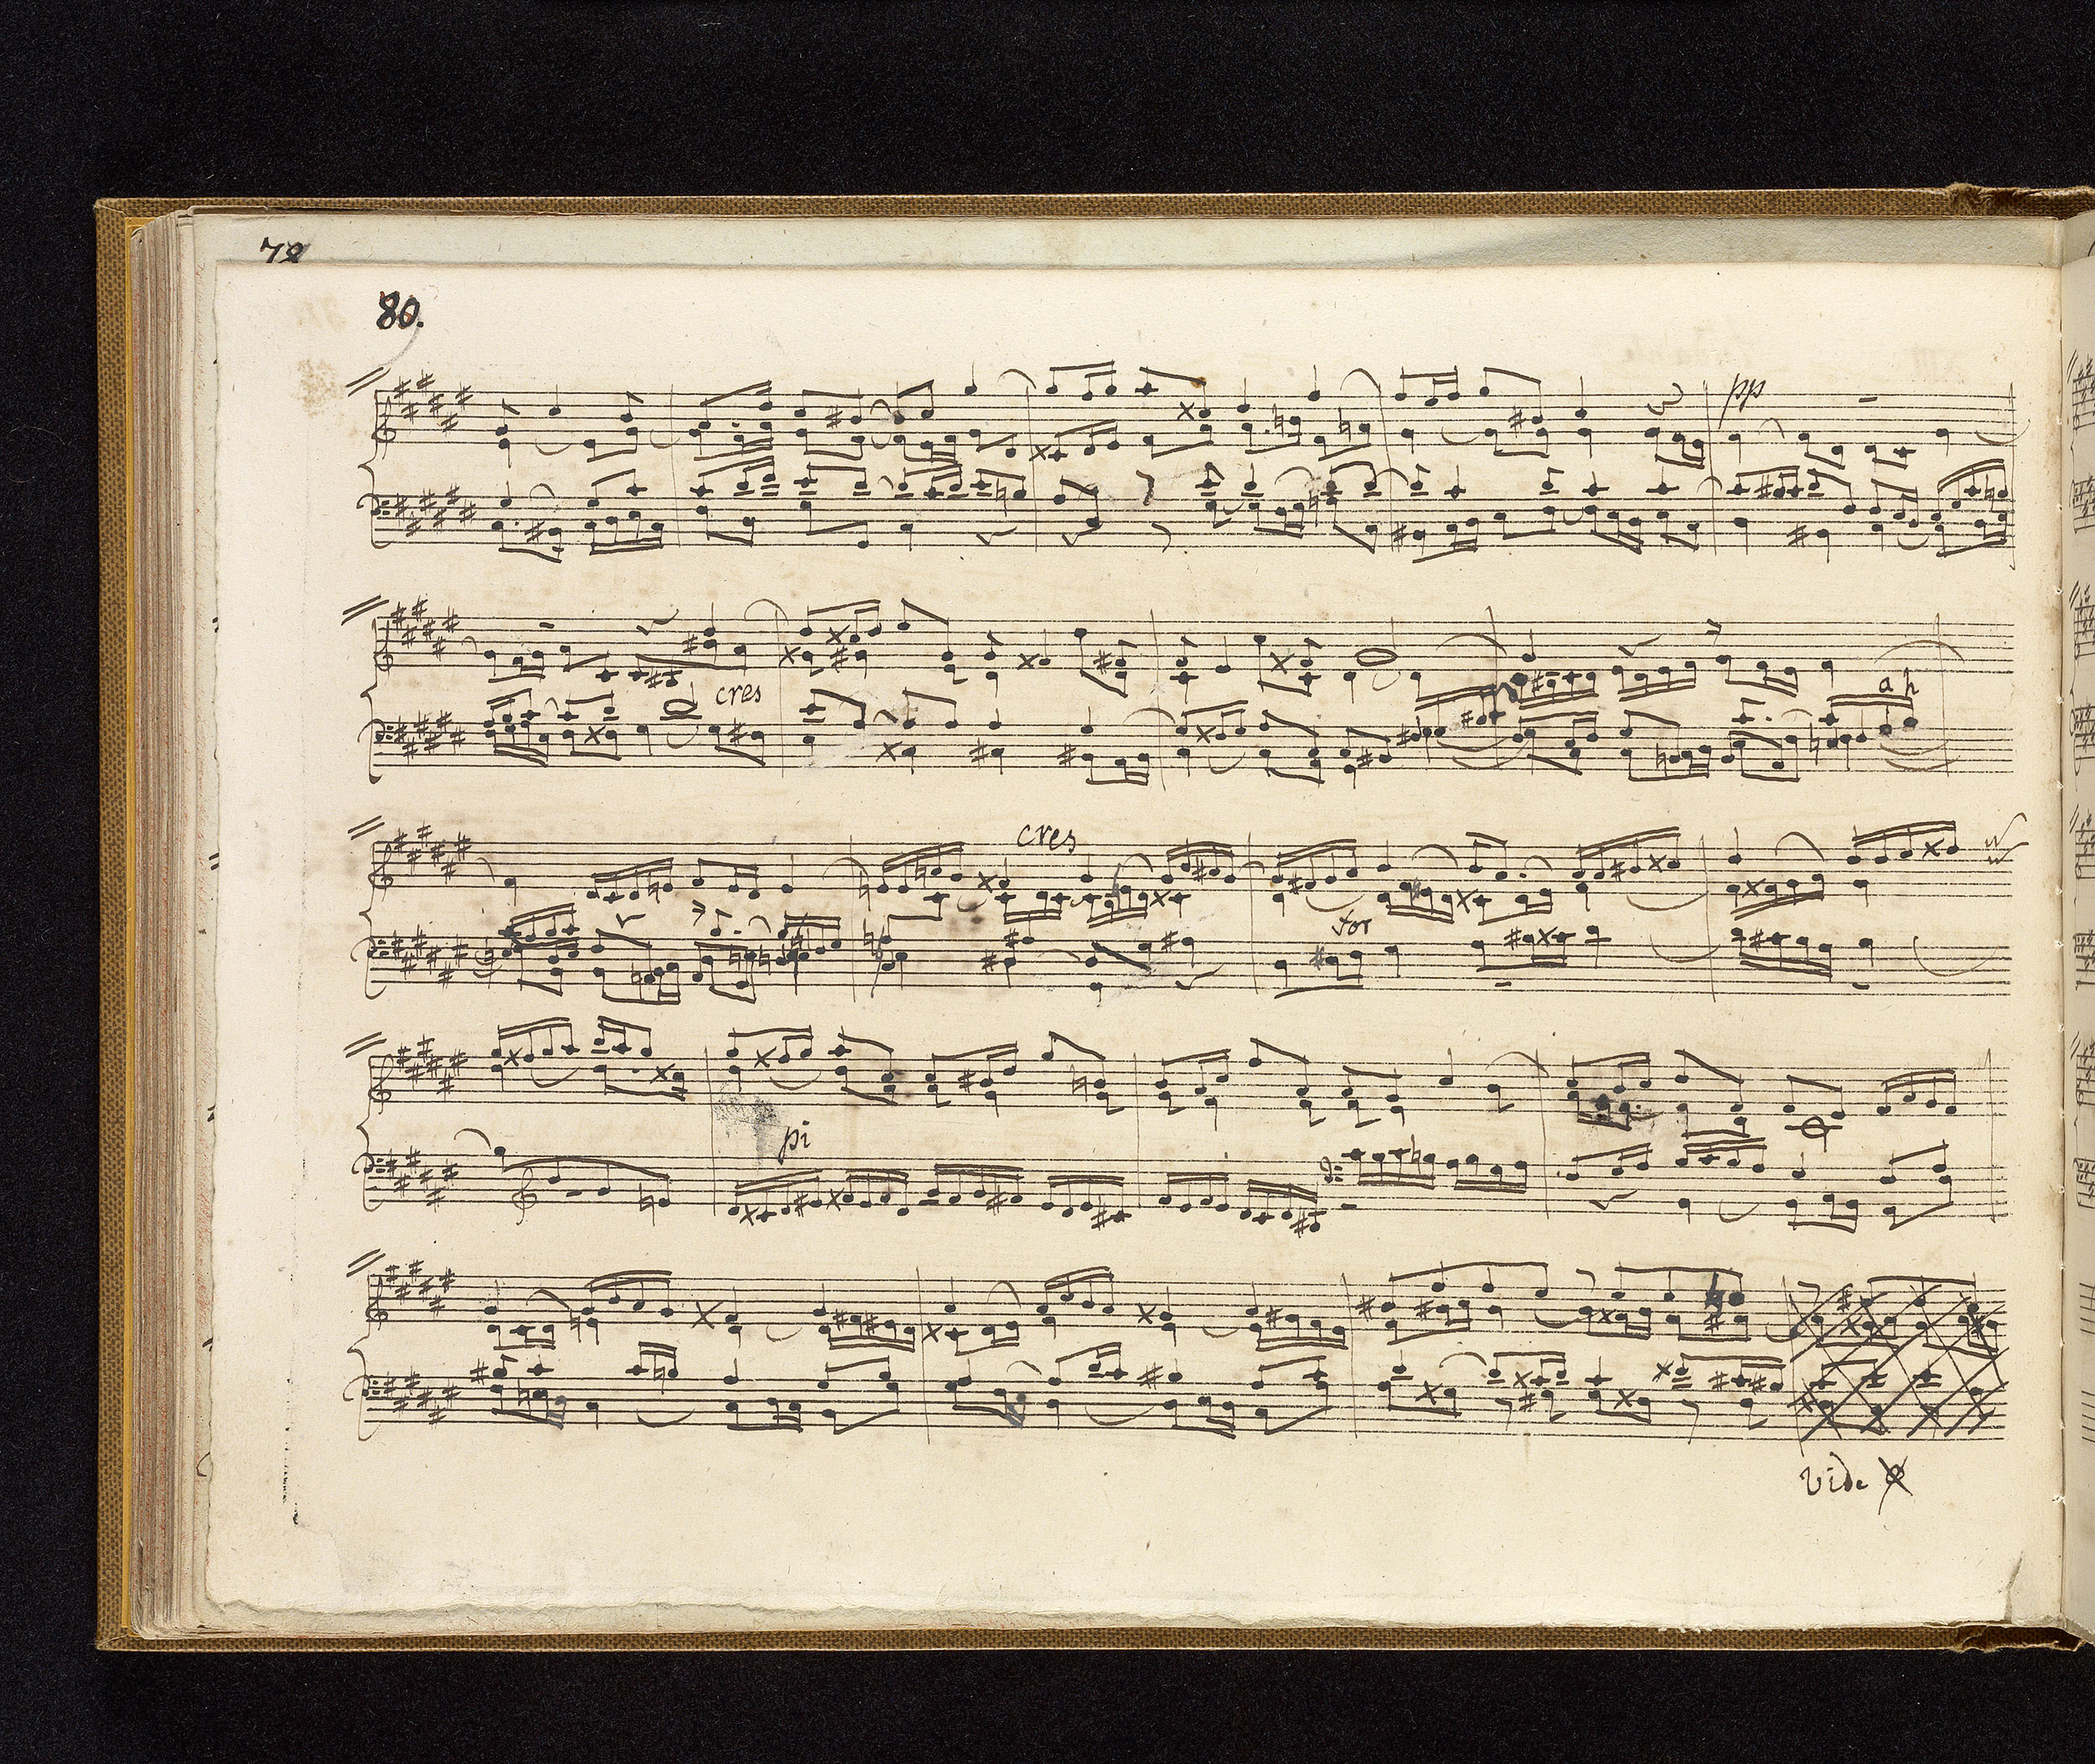 78
80.
pp
cres
a h
cres
for
pi
vide